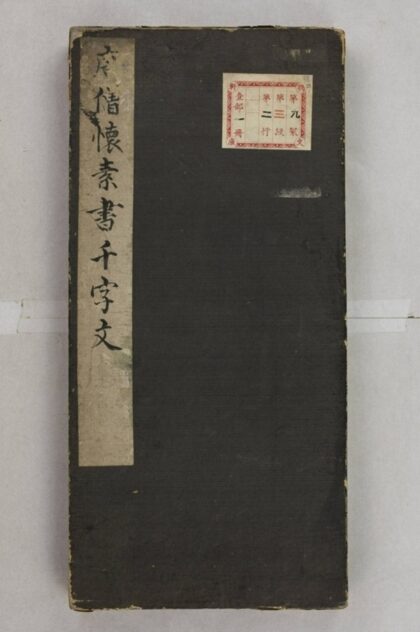 唐僧懷素書千字文
第九架
第三段
第二行
全部一冊